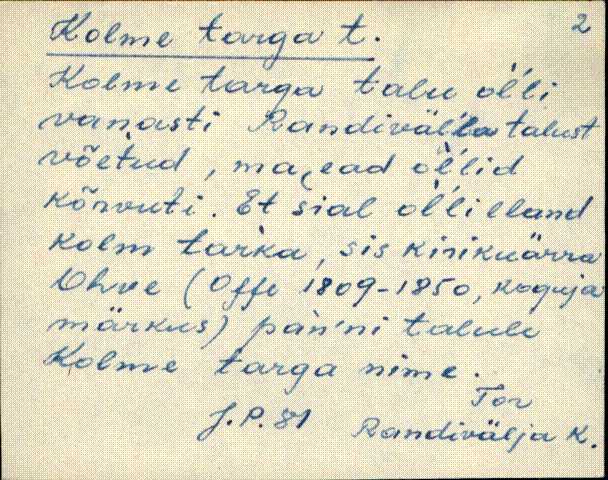 2
Kolme targa t.
Kolme targa talu oĺli
vanasti Randiväĺla talust
võetud, majead oĺlid
kõrvuti. Et sial oĺli eland
kolm tarka, sis kirikuärra
Ohve (Offe 1809-1850, koguja
märkus) pań'ni talule
Kolme targa nime.
Tor
J.P. 81 Randivälja K.